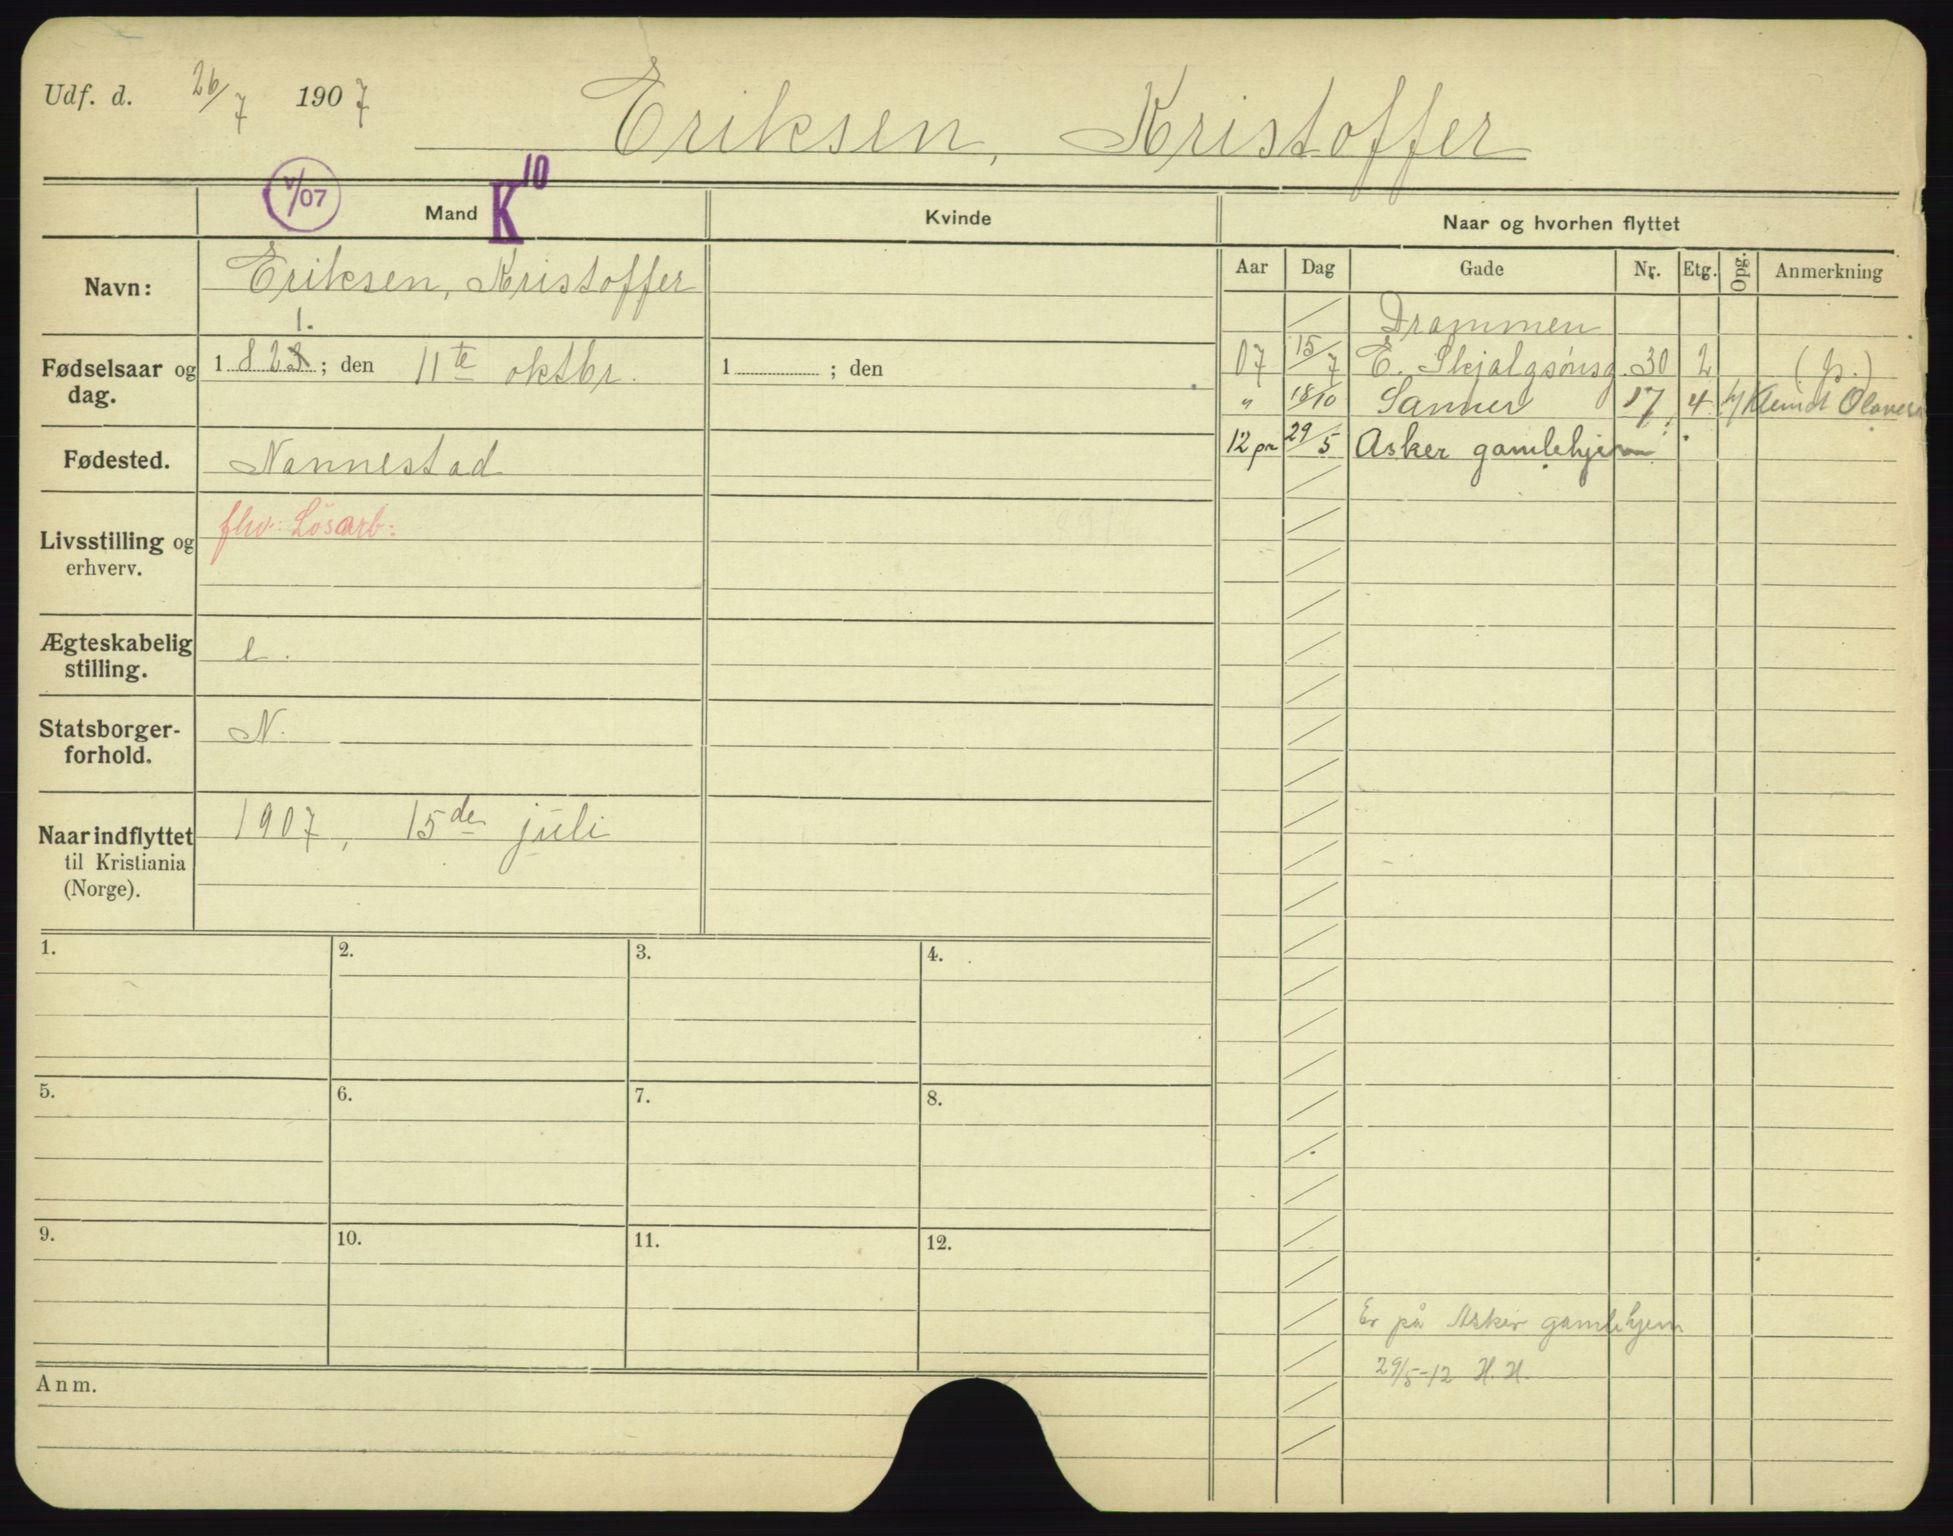 Udf. d. 26/7 1907
Eriksen, Kristoffer
V/07
K 10
Mand
Kvinde
Naar og hvorhen flyttet
Aar Dag Gade Nr. Etg. Opg. Anmerkning
Navn: Eriksen, Kristoffer
Drammen
1.
Fødselsaar og dag. 1 823 ; den 11te oktbr.
1 ; den
07 15/7 E. Skjalgsønsg. 30 2 (p.)
" 18/10 Sanner 17 4 Olavesen
12 pr 29/5 Asker gamlehjem
Fødested. Nannestad
Livsstilling og erhverv. fhv: Løsarb:
Ægteskabelig stilling. e.
Statsborger-
forhold. N.
Naar indflyttet
til Kristiania
(Norge). 1907, 15de juli
1. 2. 3. 4.
5. 6. 7. 8.
9. 10. 11. 12.
Er på Asker gamlehjem
29/5-12 H. H.
Anm.